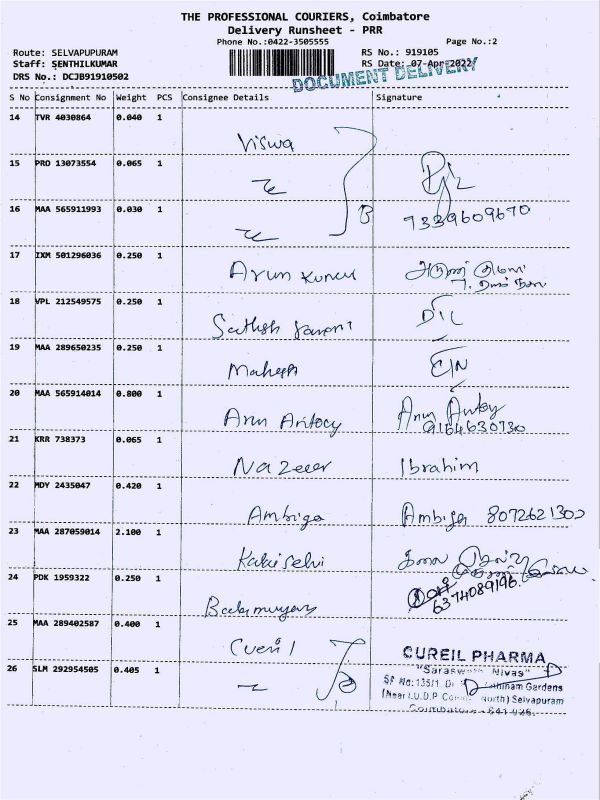 THE PROFESSIONAL COURIERS, Coimbatore
Delivery Runsheet - PRR
Phone No.:0422-3505555
Page No.:2
Route: SELVAPUPURAM
RS No.: 919105
Staff: SENTHILKUMAR
RS Date: 07-Apr-2022
DRS No.: DCJB91910502
DOCUMENT DELIVERY
S No Consignment No Weight PCS Consignee Details Signature
14 TVR 4030864 0.040 1 Viswa
15 PRO 13073554 0.065 1
16 MAA 565911993 0.030 1 7339609670
17 IXM 501296036 0.250 1 Arun Kumar
18 VPL 212549575 0.250 1 Sathish
19 MAA 289650235 0.250 1 Mahesh
20 MAA 565914014 0.800 1 Arun Antocy Arun Antoy
9164630730
21 KRR 738373 0.065 1 Nazeer Ibrahim
22 MDY 2435047 0.420 1 Ambiga Ambiga 8072621302
23 MAA 287059014 2.100 1 Kalaiselvi
24 PDK 1959322 0.250 1 Balamurugan 6374089196
25 MAA 289402587 0.400 1
CUREIL PHARMA
26 SLM 292954505 0.405 1
"Saraswathi Nivas"
SF No: 135/1, Gardens
(Near I.U.D.P North) Selvapuram
Coimbatore - 641 026.